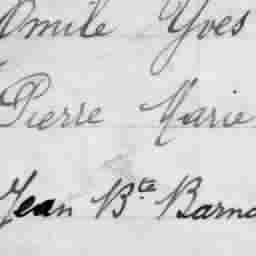 Emile Yves
Pierre Marie
Jean Bte Barna